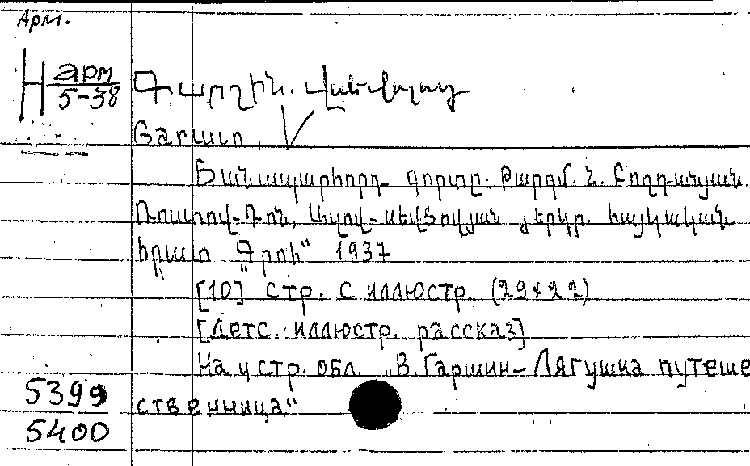 Арм.
Н арм
5-38
Գարշին. Վսեվոլոդ
Ճանապարհորդ գորտը. Թարգմ. Ն.
Ռոստով-Դոն, Ազով-սևծովյան երկր. հայկական
հրատ „Գրքի“ 1937
[10] стр. с иллюстр. (29х22)
[Детс. иллюстр. рассказ]
На 4 стр. обл. „В. Гаршин-Лягушка путеше
ственница“
5399
5400